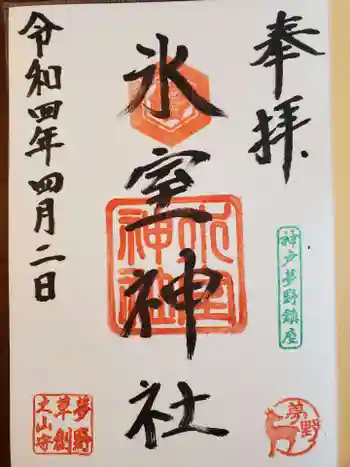 奉拝
神戸夢野鎮座
夢野
氷室神社
氷室
神社
令和四年四月二日
夢野
草創